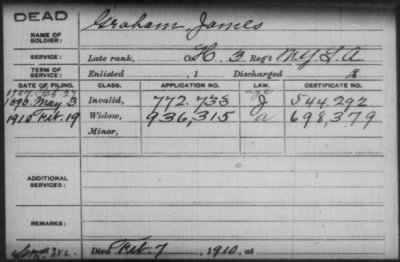 DEAD
NAME OF SOLDIER: Graham, James
SERVICE: Late rank, Co. H. 3 Reg't N.Y. L. A.
TERM OF SERVICE: Enlisted , 1 Discharged , 1
DATE OF FILING. CLASS. APPLICATION NO. LAW. CERTIFICATE NO.
1890. May 3 Invalid, 772.733 J 544.292
1910 Feb. 19 Widow, 936,315 a 698,379
Minor,
ADDITIONAL SERVICES:
REMARKS:
Died Feb. 7 , 1910, at